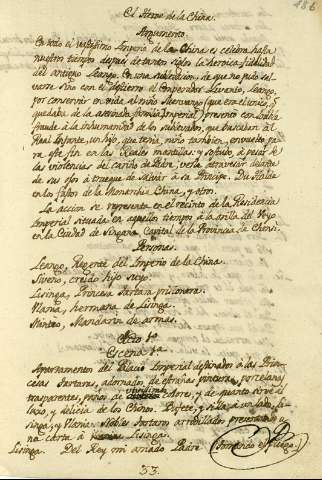 186
El Heroe de la China.
Argumento.
En todo el vastissimo Imperio de la China es celebre hasta
nuestros tiempos despues de tantos siglos la heroica fidelidad
del antiguo Leango. En una sublevacion, de que no pudo sal-
varse sino con el destierro el Emperador Livanio, Leango,
por conservar en vida al niño Suenvango (que era el unico, q
quedaba de la asesinada familia Imperial) presentó con
fraude à la inhumanidad de los sublevados, que buscaban al
Real Infante, un hijo, que tenia, niño tambien, envuelto pa-
ra este fin en las Reales mantillas: y sufrió, à pesar de
las violencias del cariño de Padre, verlo atravesar delante
de sus ojos à trueque de salvar à su Principe. Du Halde
en los fastos de la Monarchia China, y otros.
La accion se representa en el recinto de la Residencia
Imperial situada en aquellos tiempos à la orilla del
en la Ciudad de Singana Capital de la Provincia de Chensi.
Personas.
Leango, Regente del Imperio de la China.
Siveno, creido hijo suyo.
Lisinga, Princesa Tartara prisionera.
Ulania, hermana de Lisinga.
Minteo, Mandarin de armas.
Acto 1º
Escena 1ª
Apartamentos del Palacio Imperial destinados à las Prin-
cesas Tartaras, adornados de estrañas pinturas, porcelanas
trasparentes, paños de colores, y de quanto sirve al
luxo, y delicia de los Chinos. Bufete, y silla à un lado. Lisi-
nga, y Ulania. Nobles Tartaros arrodillados presentando
una carta à Lisinga.
Lisinga. Del Rey mi amado Padre (tomando el pliego)
53.